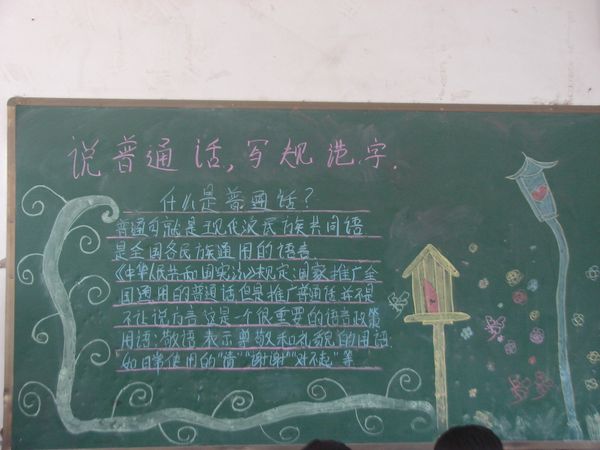 说普通话，写规范字.
什么是普通话？
普通话就是现代汉民族共同语
是全国各民族通用的语言
《中华人民共和国宪法》规定:国家推广全
国通用的普通话但是推广普通话并不是
不让说方言这是一个很重要的语言政策
用语:敬语表示尊敬和礼貌的用语
如日常使用的"请""谢谢""对不起"等